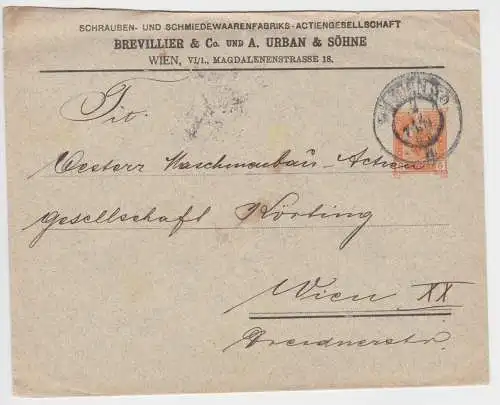 SCHRAUBEN- UND SCHMIEDEWAARENFABRIKS-ACTIENGESELLSCHAFT
BREVILLIER & Co. UND A. URBAN & SÖHNE
WIEN, VI/1., MAGDALENENSTRASSE 18.
Tit.
Oesterr Maschinenbau-Actien
gesellschaft Körting
Wien XX
Dresdnerstr.